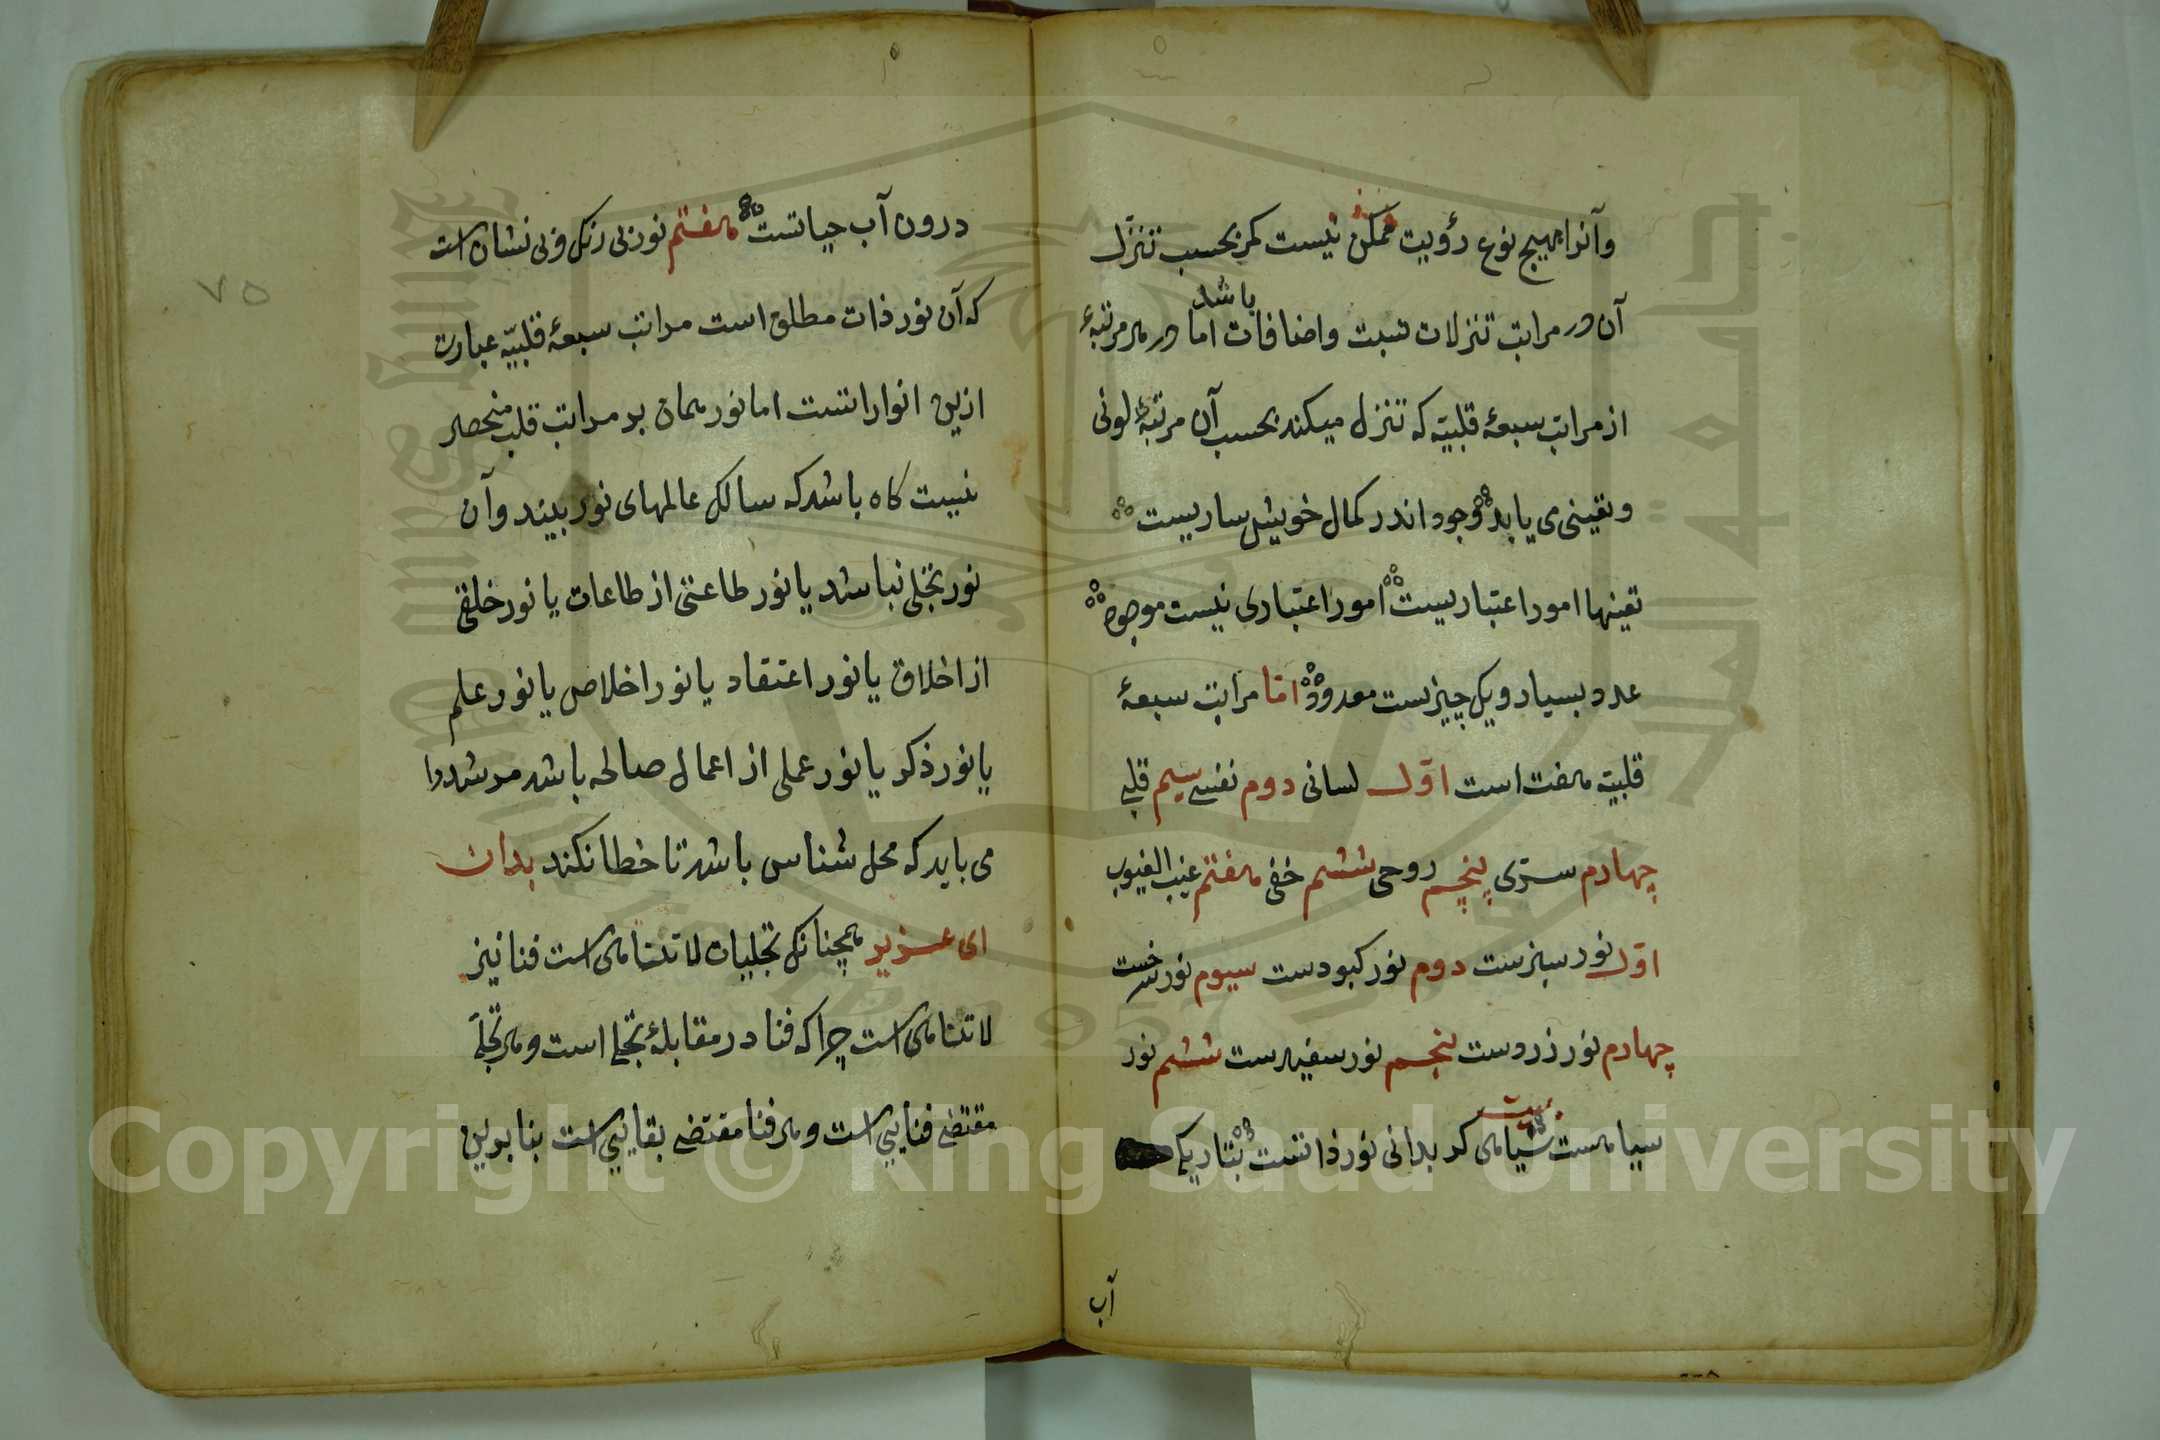 وآنرا بهیچ نوع رؤیت ممکن نیست مکر بحسب تنزل
آن ور مراتب تنزلات نسبت واضافات باشد اما ور هر مرتبهٔ
از مراتب سبعهٔ قلبیّه که تنزل میکند بحسب آن مرتبهٔ لونی
وتعینی می یابد وجود اندر کمال خویش ساریست
تعینها امور اعتباریست امور اعتباری نیست موجود
عدد بسیار ویک چیزست معدود امّا مراتب سبعهٔ
قلبیّه هفت است اوّل لسانی دوم نفسی سیم قلبی
چهارم سرّی پنجم روحی ششم خفی هفتم غیب الغیوب
اوّل نور سبزست دوم نور کبودست سیوم نور سرخست
چهارم نور زردست پنجم نور سفیدست ششم نور
سیاهست بیت سیاهی کر بدانی نور ذاتست بتاریکی
آب
۷۵
درون آب حیاتست هفتم نور بی رنک وبی نشان است
که آن نور ذات مطلق است مراتب سبعهٔ قلبیّه عبارت
ازین انوارا تست اما نور همان بر مراتب قلب منحصر
نیست کاه باشد که سالک عالمهای نور بیند وآن
نور تجلی نباشد یا نور طاعتی از طاعات یا نور خلقی
از اخلاق یا نور اعتقاد یا نور اخلاص یا نور علم
یا نور ذکر یا نور عملی از اعمال صالحه باشد مرشد را
می باید که محل شناس باشد تا خطا نکند بدان
ای عزیز همچنانک تجلیات لا تتناهی است فنا نیز
لا تتناهی است چرا که فنا در مقابلهٔ تجلی است وهر تجلّی
مقتضی فنایی است وهر فنا مقتضی بقایی است بنا برین
Copyright © King Saud University